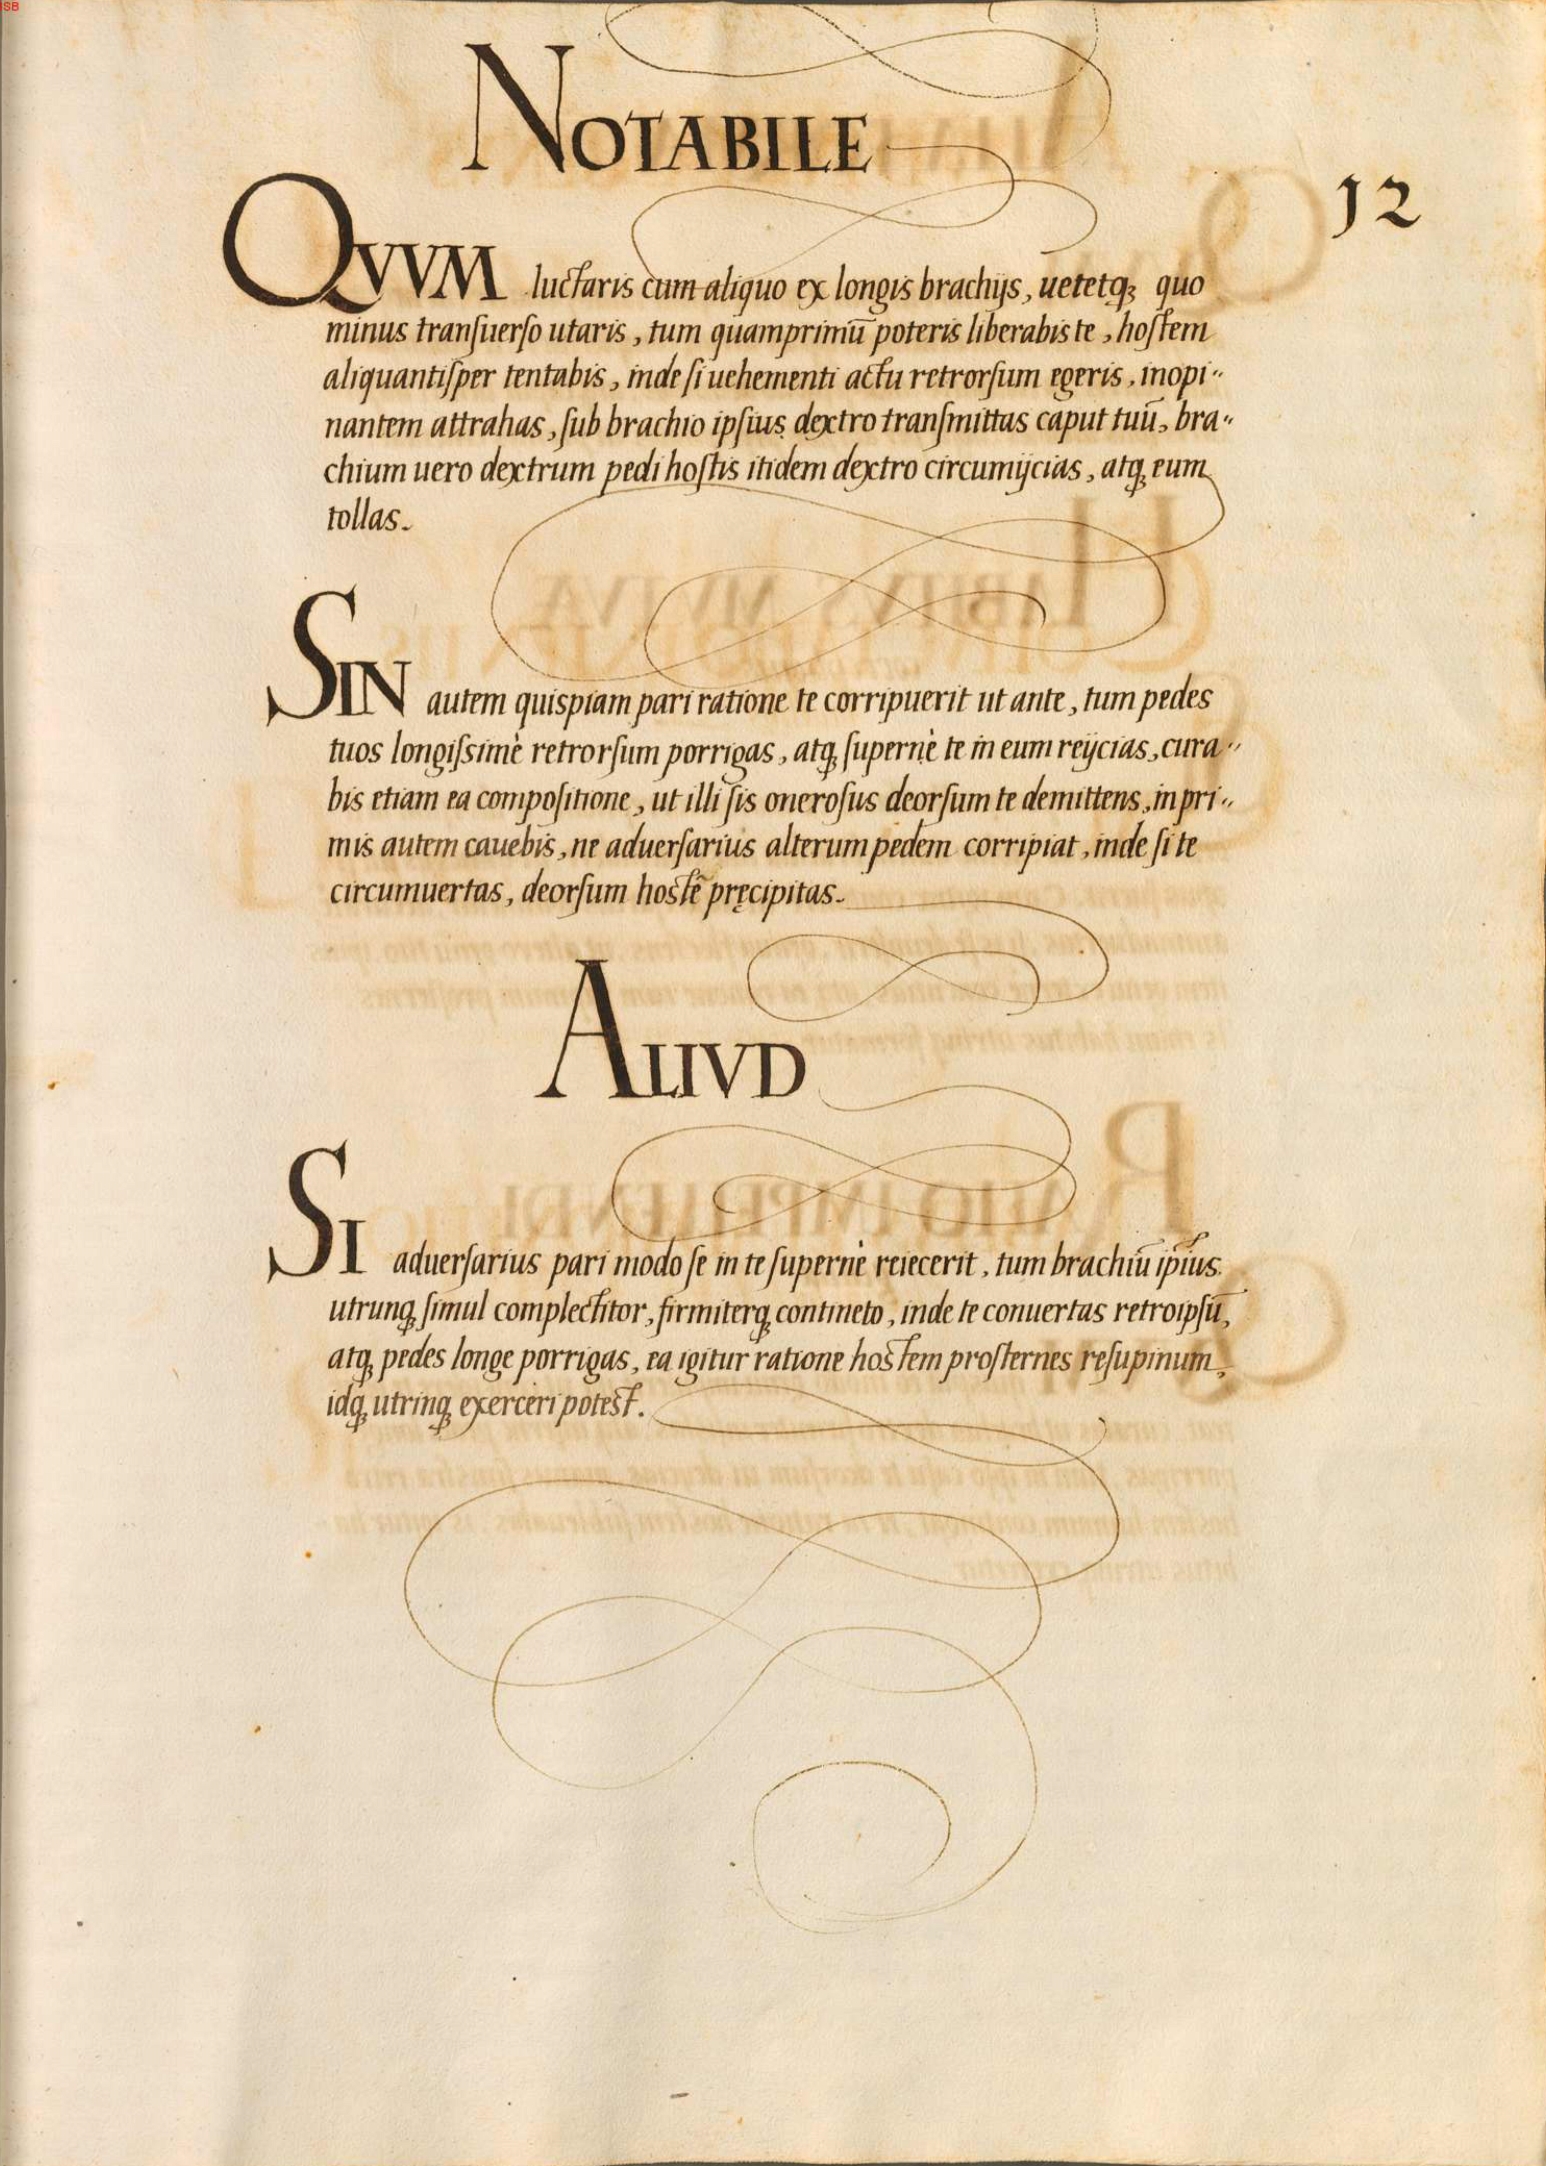 NOTABILE
12
QVVM luctaris cum aliquo ex longis brachijs, uetetq́ꝫ quo
minus transuerso utaris, tum quamprimū poteris liberabis te, hostem
aliquantisper tentabis, inde si uehementi actu retrorsum egeris, inopi-
nantem attrahas, sub brachio ipsius dextro transmittas caput tuū, bra-
chium uero dextrum pedi hostis itidem dextro circumijcias, atqꝫ eum
tollas.
SIN autem quispiam pari ratione te corripuerit ut ante, tum pedes
tuos longissimè retrorsum porrigas, atqꝫ supernè te in eum reijcias, cura-
bis etiam ea compositione, ut illi sis onerosus deorsum te demittens, in pri-
mis autem cauebis, ne aduersarius alterum pedem corripiat, inde si te
circumuertas, deorsum hostē pręcipitas.
ALIVD
SI aduersarius pari modo se in te supernè reiecerit, tum brachiū ip̄ius
utrunqꝫ simul complectitor, firmiterqꝫ contineto, inde te conuertas retro ipsū,
atqꝫ pedes longe porrigas, ea igitur ratione hostem prosternes resupinum,
idqꝫ utrinqꝫ exerceri potest.